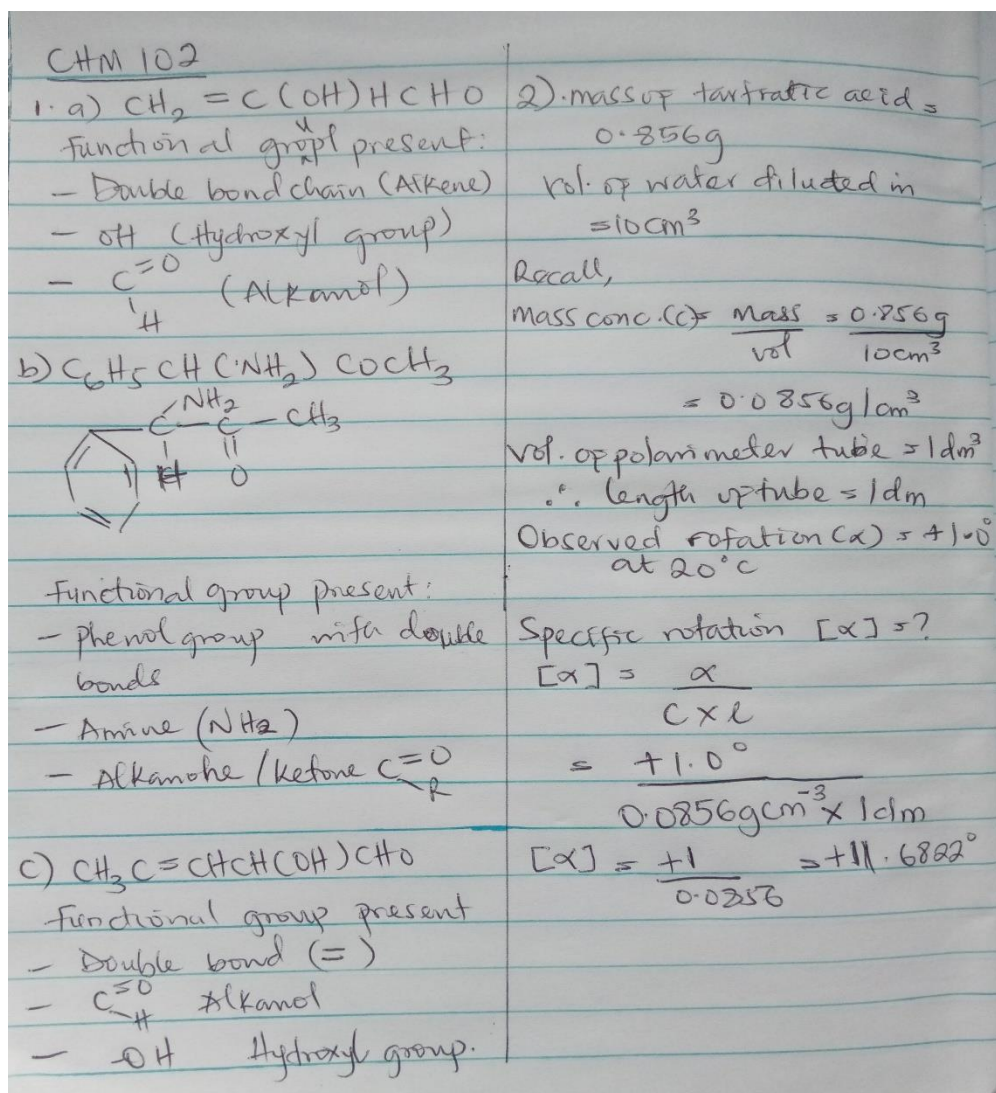 CHM 102
1. a) CH₂ = C(OH)HCHO
Functional gropl present:
- Double bond chain (Alkene)
- OH (Hydroxyl group)
- C=O (Alkanol)
H
b) C₆H₅CH(NH₂)COCH₃
NH₂
C - C - CH₃
H O
Functional group present:
- phenol group with double
bonds
- Amine (NH₂)
- Alkanone/ketone C=O
R
c) CH₃C=CHCH(OH)CHO
Functional group present
- Double bond (=)
- C=O Alkanol
H
- -OH Hydroxyl group.
2). mass of tartratic acid =
0.856g
vol. of water diluted in
=10cm³
Recall,
Mass conc.(c)= Mass/vol = 0.856g/10cm³
= 0.0856g/cm³
Vol. of polarimeter tube = 1dm³
∴ length of tube = 1dm
Observed rotation (α) = +1.0°
at 20°C
Specific rotation [α] =?
[α] = α
C x l
= +1.0°
0.0856gcm⁻³ x 1dm
[α] = +1/0.0856 = +11.6822°